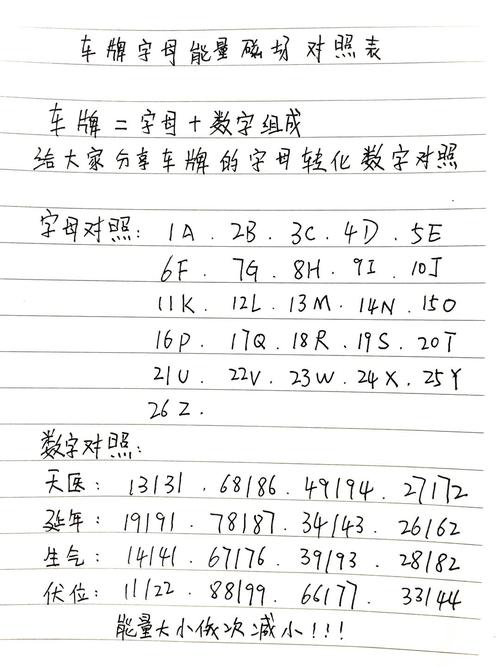 车牌字母能量磁场对照表
车牌=字母+数字组成
给大家分享车牌的字母转化数字对照
字母对照: 1A . 2B . 3C . 4D . 5E
6F . 7G . 8H . 9I . 10J
11K . 12L . 13M . 14N . 15O
16P . 17Q . 18R . 19S . 20T
21U . 22V . 23W . 24X . 25Y
26Z .
数字对照:
天医: 13131 . 68186 . 49194 . 27172
延年: 19191 . 78187 . 34143 . 26162
生气: 14141 . 67176 . 39193 . 28182
伏位: 11/22 . 88199 . 66177 . 33144
能量大小依次减小!!!